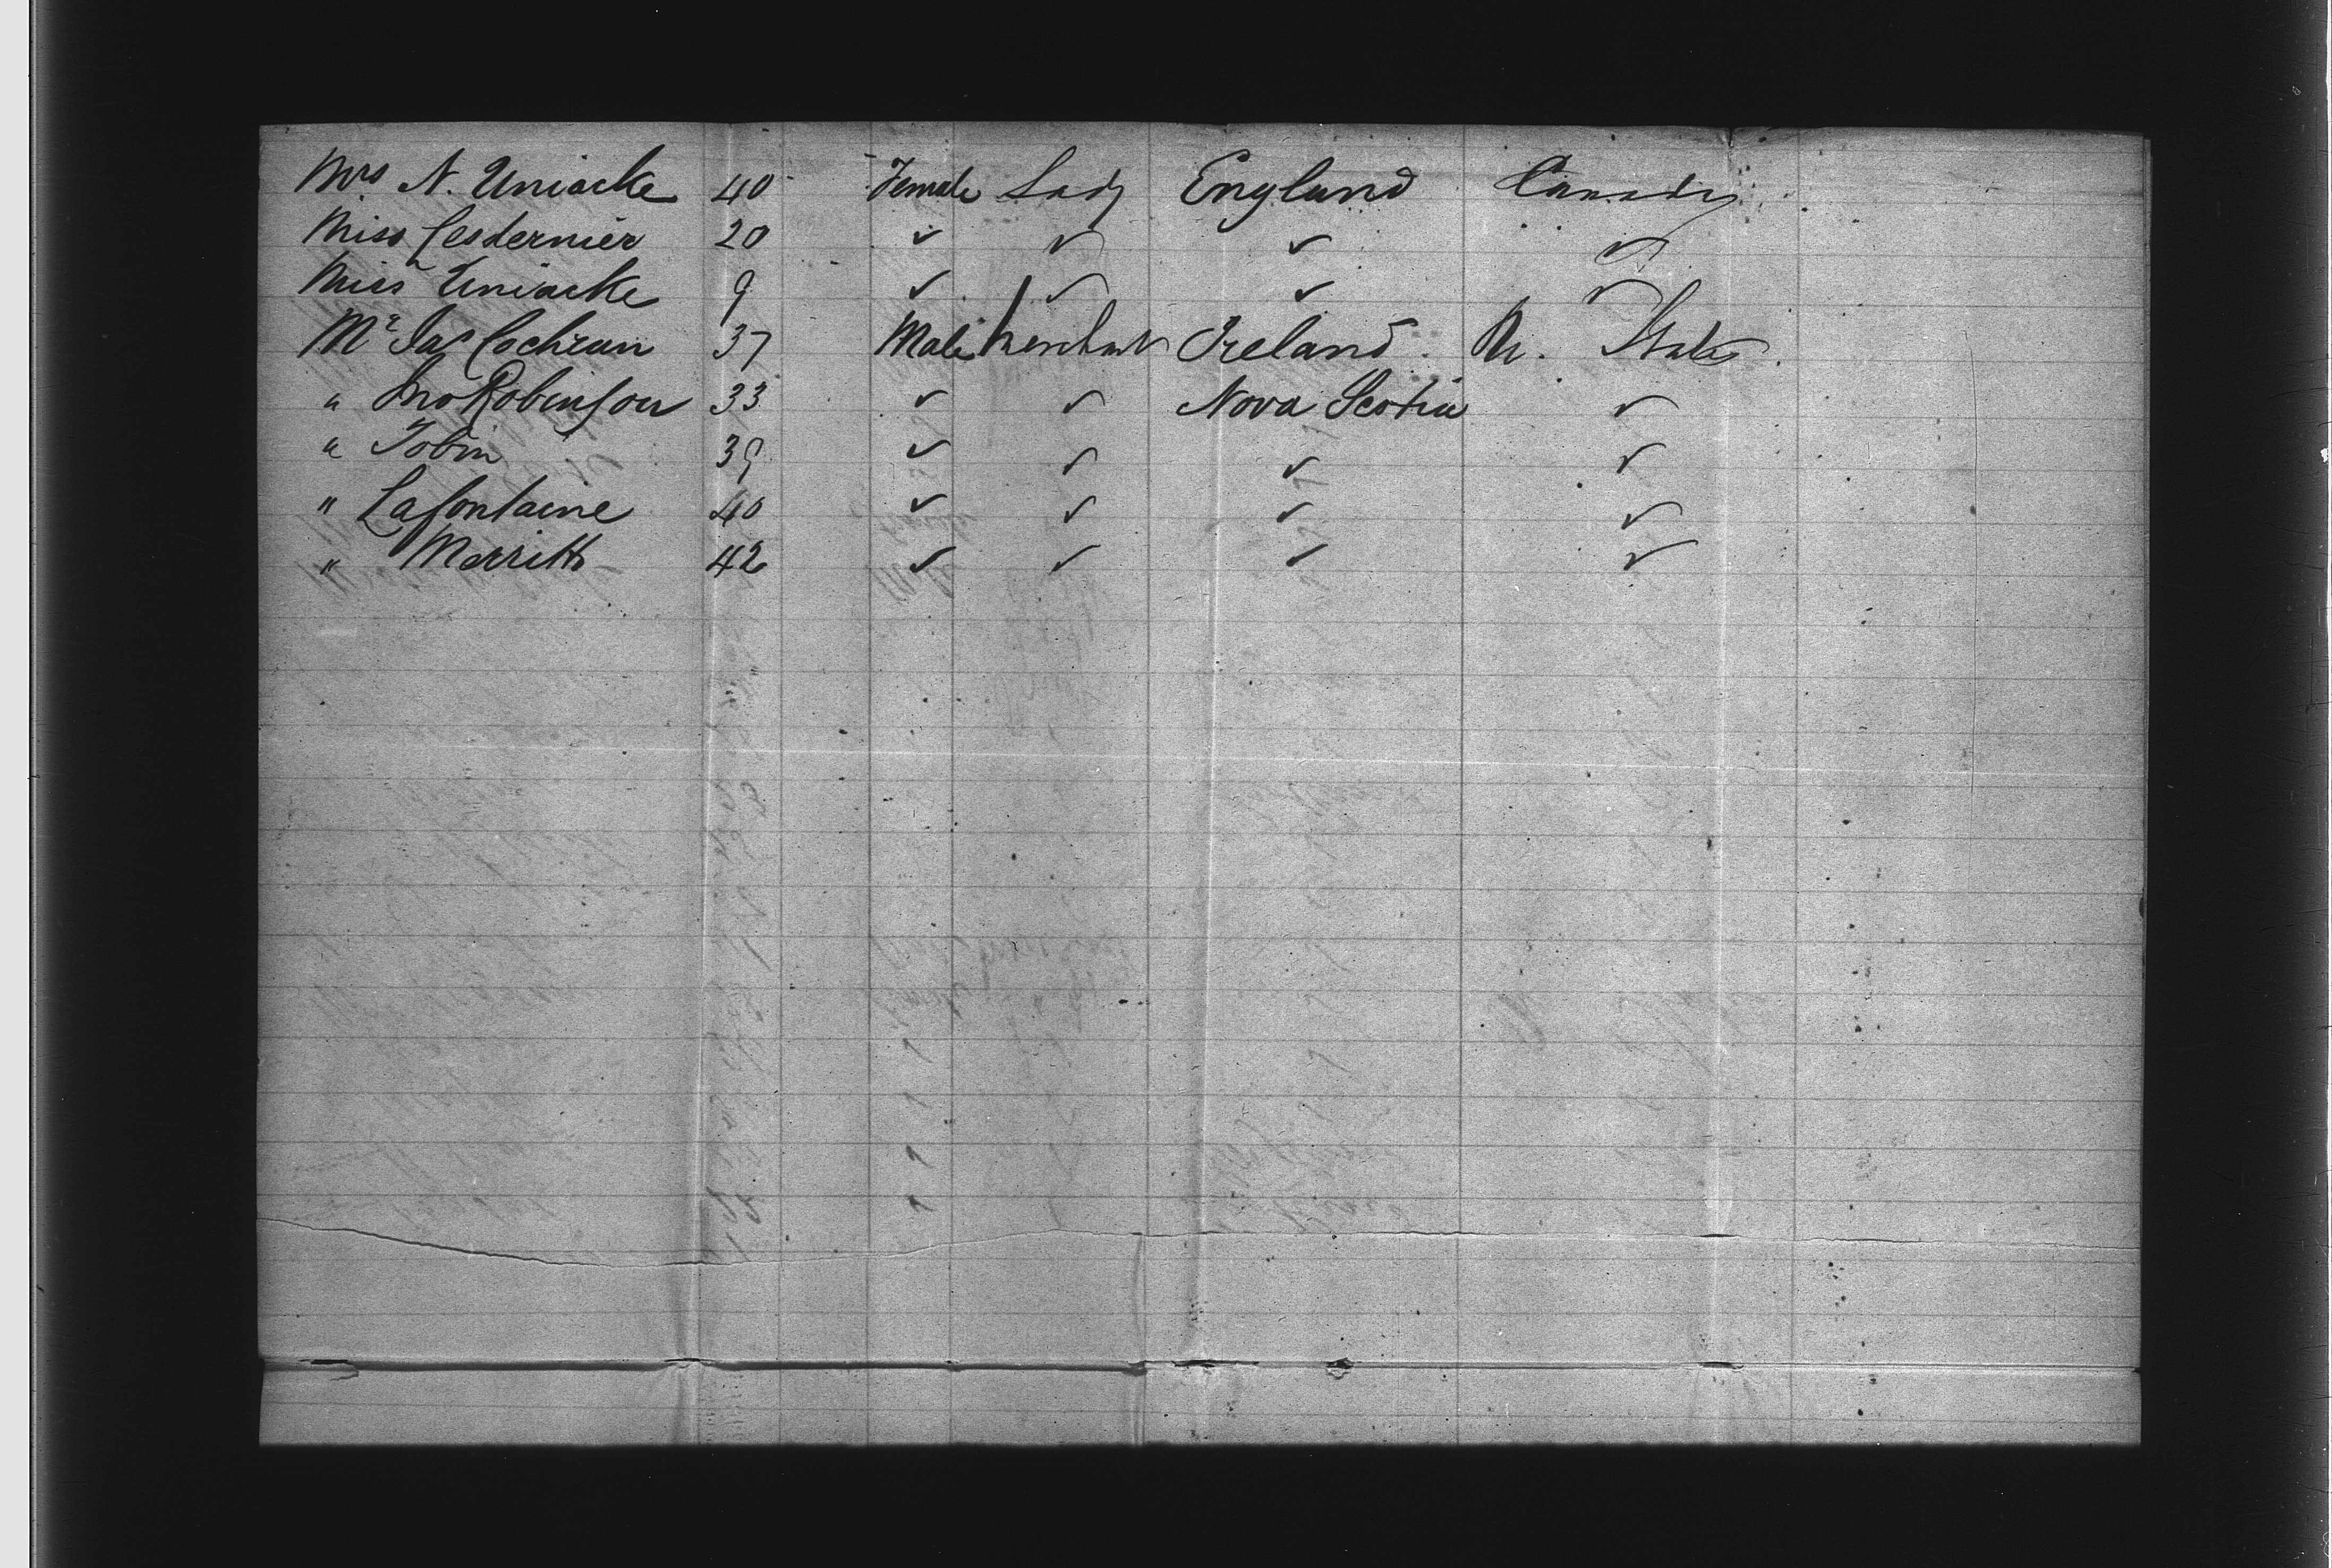 Mrs N. Uniacke 40 Female Lady England Canada
Miss Lesdernier 20 ✓ ✓ ✓ ✓
Miss Uniacke 9 ✓ ✓ ✓ ✓
Mr Jas Cochran 37 Male Merchant Ireland. U. States.
" Jno Robinson 33 ✓ ✓ Nova Scotia ✓
" Tobin 39 ✓ ✓ ✓ ✓
" Lafontaine 40 ✓ ✓ ✓ ✓
" Merritt 42 ✓ ✓ ✓ ✓